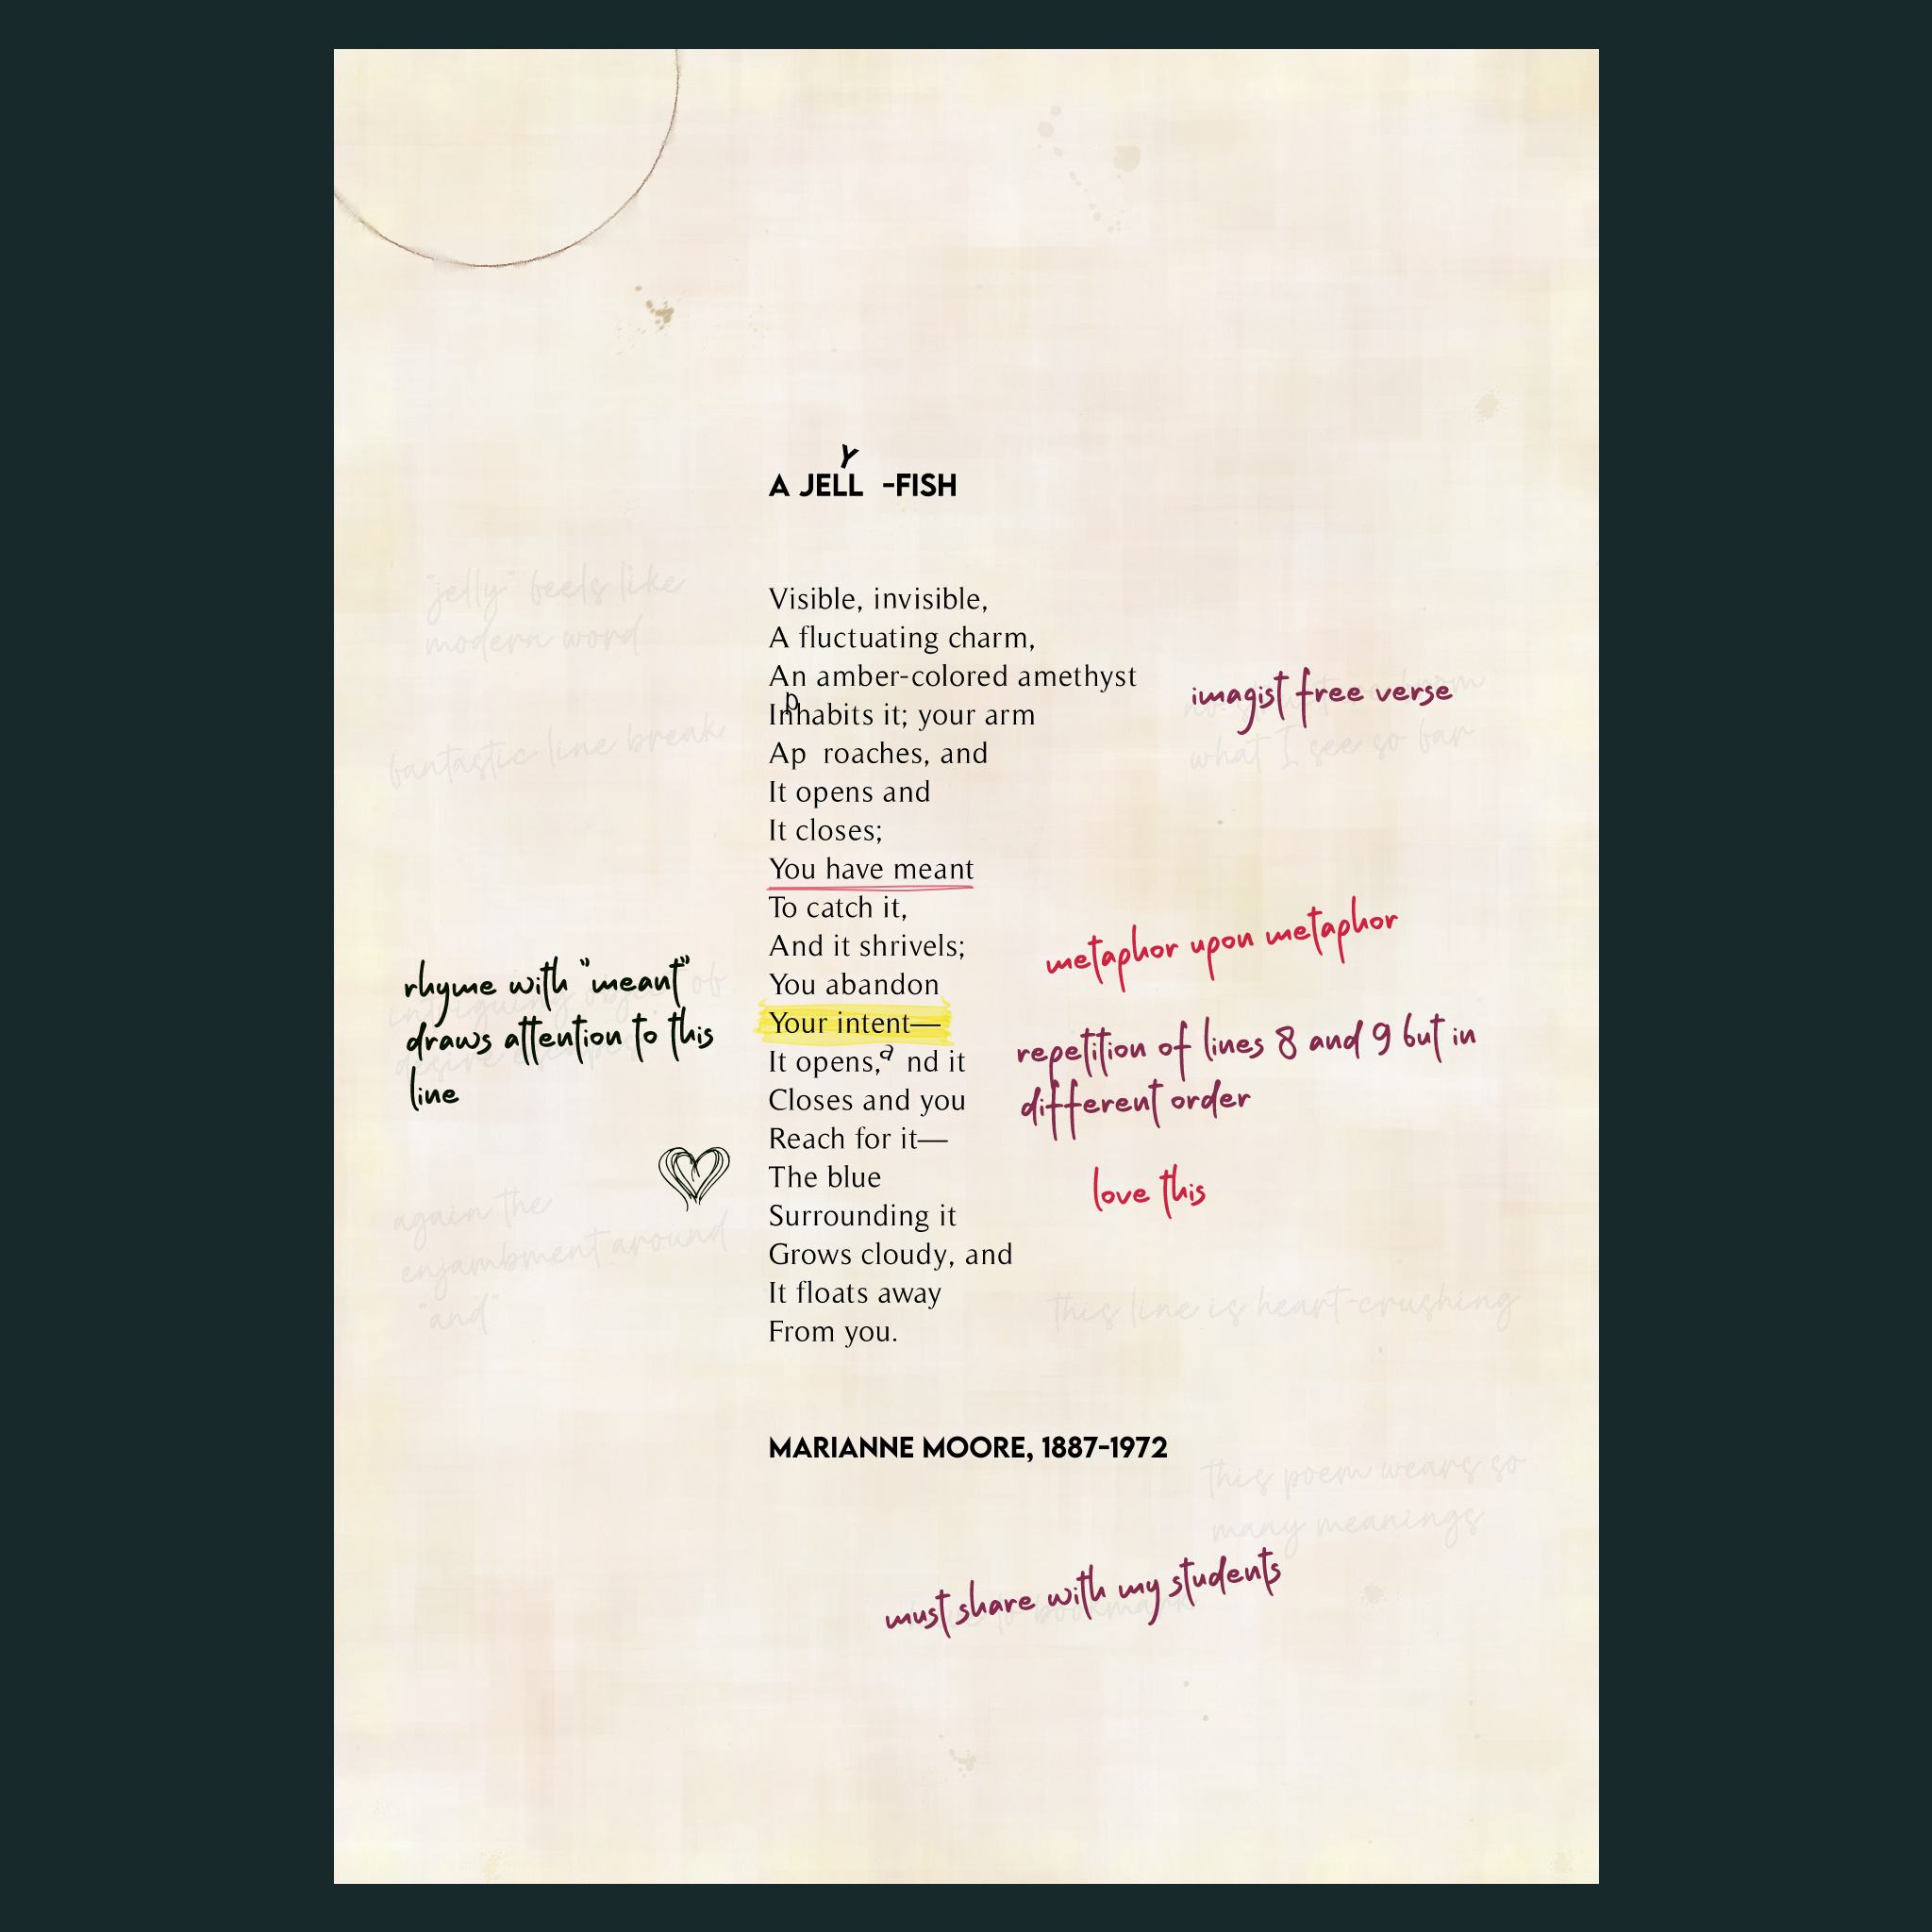 A JELLY-FISH
Visible, invisible,
A fluctuating charm,
An amber-colored amethyst
Inhabits it; your arm
Approaches, and
It opens and
It closes;
You have meant
To catch it,
And it shrivels;
You abandon
Your intent—
It opens, and it
Closes and you
Reach for it—
The blue
Surrounding it
Grows cloudy, and
It floats away
From you.
MARIANNE MOORE, 1887-1972
"jelly" feels like
modern word
fantastic line break
imagist free verse
what I see so far
rhyme with "meant"
draws attention to this
line
intriguing object of
desire
metaphor upon metaphor
repetition of lines 8 and 9 but in
different order
love this
again the
enjambment around
"and"
this line is heart-crushing
this poem wears so
many meanings
must share with my students
to bookmark